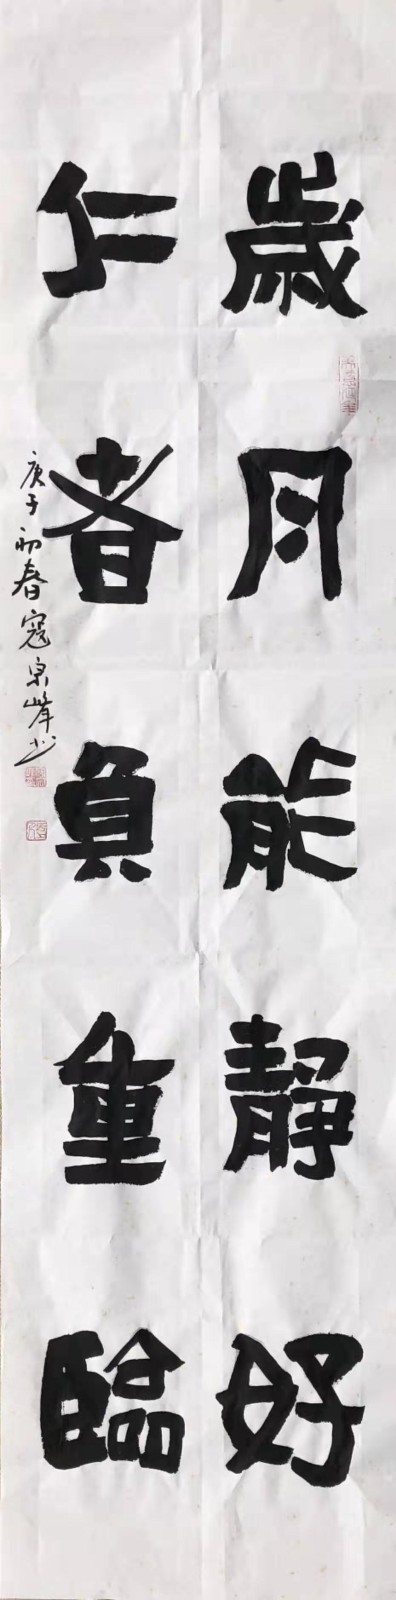 歲月能靜好
仁者負重臨
庚子初春寇泉峰书